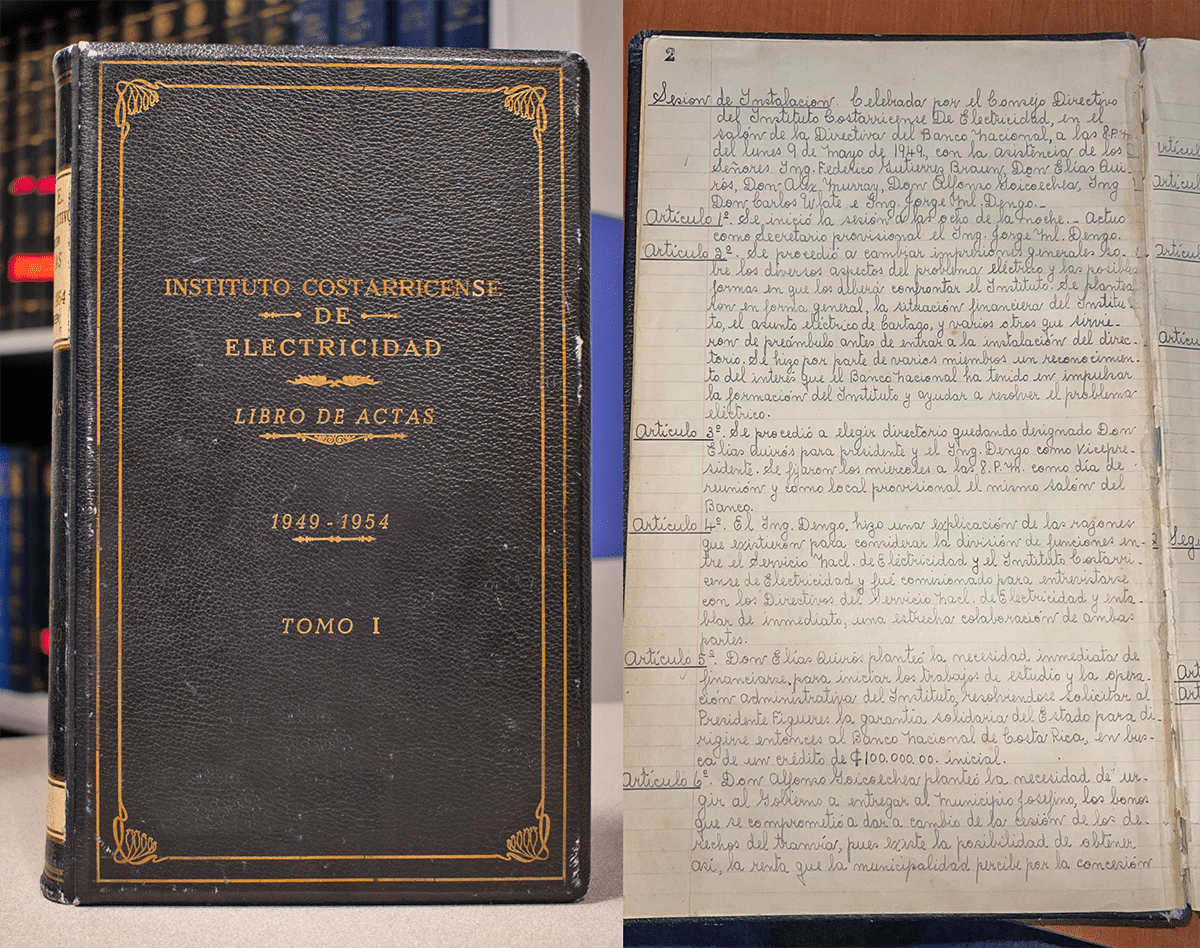 INSTITUTO COSTARRICENSE
DE
ELECTRICIDAD
LIBRO DE ACTAS
1949 - 1954
TOMO I
2
Sesion de Instalacion. Celebrada por el Consejo Directivo
del Instituto Costarricense De Electricidad, en el
salón de la Directiva del Banco Nacional, a las 8 P.M.
del lunes 9 de Mayo de 1949, con la asistencia de los
Señores Ing. Federico Gutierrez Braun, Don Elías Qui-
rós, Don Alex Murray, Don Alfonso Goicoechea, Ing
Don Carlos White e Ing. Jorge Ml. Dengo.-
Artículo 1º. Se inició la sesión a las ocho de la noche.- Actuo
como Secretario provisional el Ing. Jorge Ml. Dengo.
Artículo 2º. Se procedió a cambiar impresiones generales so-
bre los diversos aspectos del problema eléctrico y las posibles
formas en que los deberá confrontar el Instituto. Se plantea
ron en forma general, la situación financiera del Institu-
to, el asunto eléctrico de Cartago, y varios otros que sirvie-
ron de preámbulo antes de entrar a la instalación del direc-
torio. Se hizo por parte de varios miembros un reconocimien-
to del interés que el Banco Nacional ha tenido en impulsar
la formación del Instituto y ayudar a resolver el problema
eléctrico.
Artículo 3º. Se procedió a elegir directorio quedando designado Don
Elías Quirós para presidente y el Ing. Dengo como Vicepre-
sidente. Se fijaron los miercoles a las 8. P.M. como día de
reunión y como local provisional el mismo salón del
Banco.
Artículo 4º. El Ing. Dengo, hizo una explicación de las razones
que existieron para considerar la división de funciones en-
tre el Servicio Nacl. de Eléctricidad y el Instituto Costarri-
cense de Electricidad y fué comisionado para entrevistarse
con los Directivos del Servicio Nacl. de Electricidad y enta-
blar de inmediato, una estrecha colaboración de ambas
partes.
Artículo 5º. Don Elías Quirós planteó la necesidad inmediata de
financiarse, para iniciar los trabajos de estudio y la opera-
ción administrativa del Instituto, resolviendose solicitar al
Presidente Figueres la garantía solidaria del Estado para di-
rigirse entonces al Banco Nacional de Costa Rica, en bus-
ca de un crédito de ₡100.000.00. inicial.
Artículo 6º. Don Alfonso Goicoechea planteó la necesidad de ur-
gir al Gobierno a entregar al Municipio Josefino, los bonos
que se comprometió a dar a cambio de la cesión de los de-
rechos del tranvía, pues existe la posibilidad de obtener
así, la renta que la municipalidad percibe por la concesión